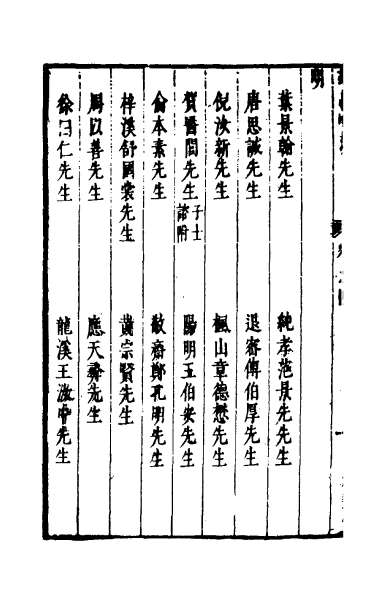 明
葉景翰先生 純孝范景先先生
唐思誠先生 退齋傅伯厚先生
倪汝新先生 楓山章德懋先生
賀醫閭先生子士諮附 陽明王伯安先生
俞本素先生 敬齋鄭孔明先生
梓溪舒國裳先生 黃宗賢先生
周以善先生 應天彝先生
徐曰仁先生 龍溪王汝中先生